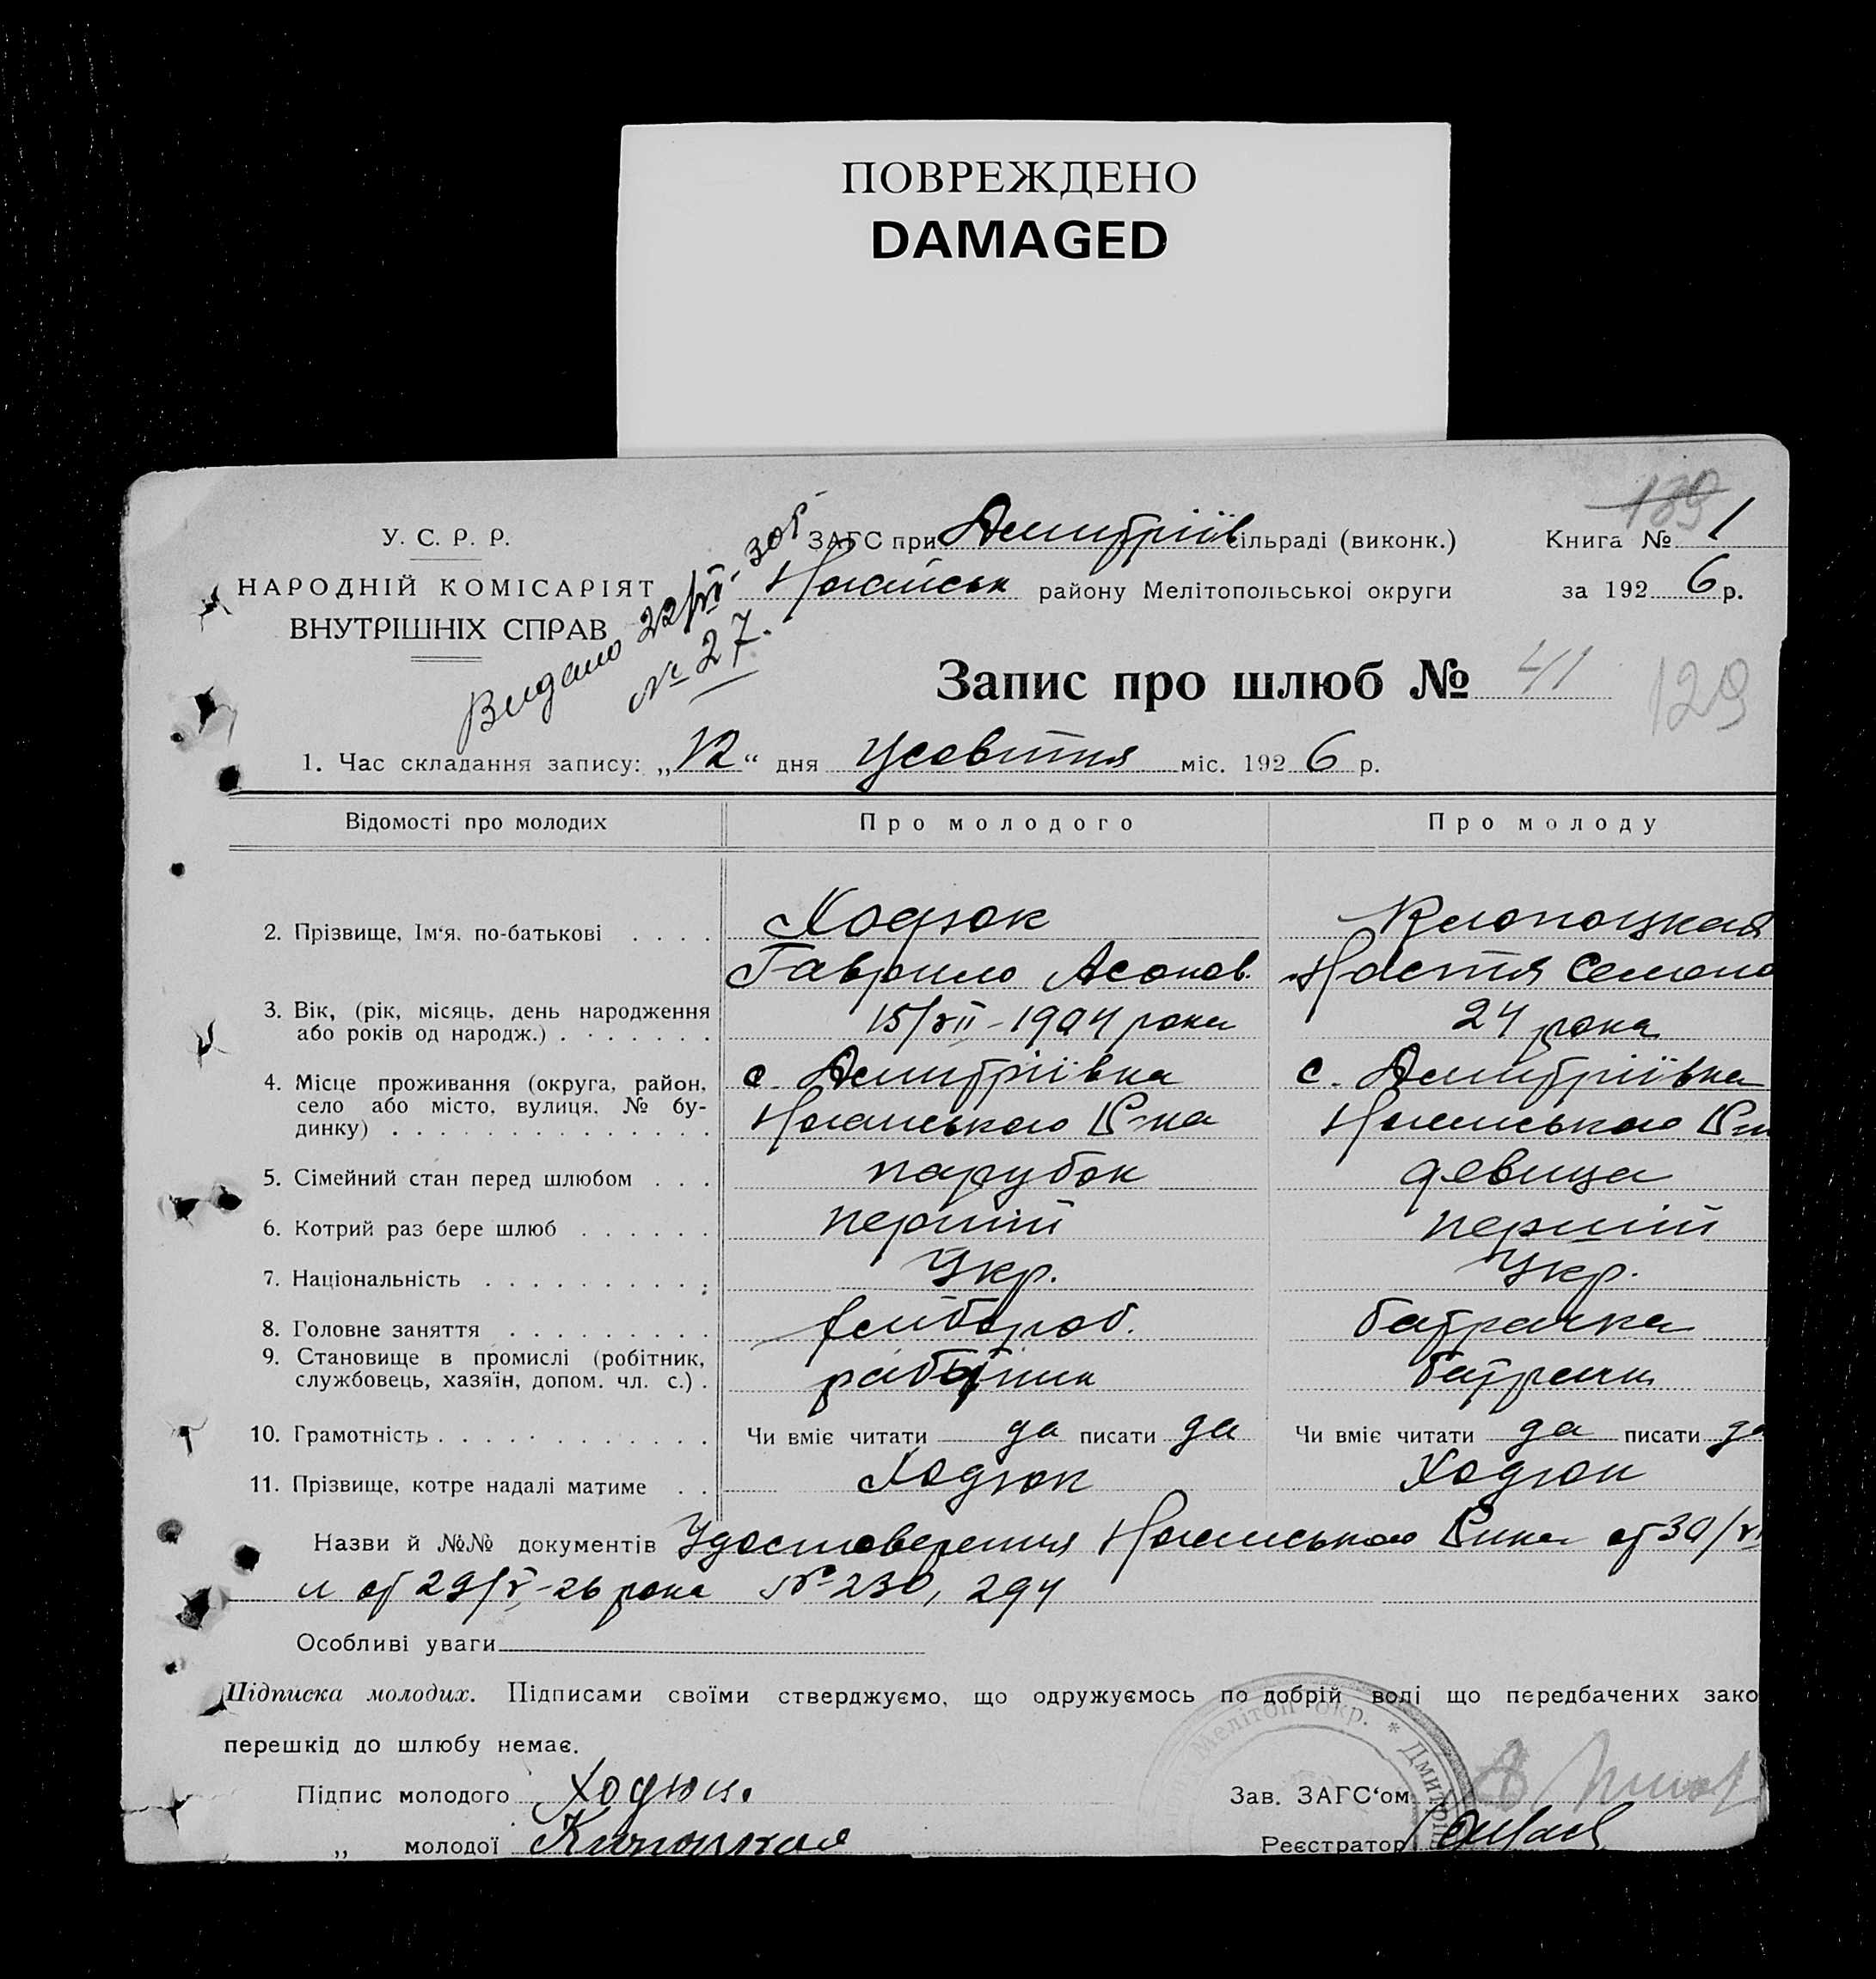 ПОВРЕЖДЕНО
DAMAGED
139
У. С. Р. Р.
НАРОДНІЙ КОМІСАРІЯТ
ВНУТРІШНІХ СПРАВ
Видано 22/VI-30р
№ 27.
ЗАГС при Дмитріїв сільраді (виконк.)
Книга № 1
Ногайськ району Мелітопольської округи
за 1926 р.
Запис про шлюб № 41
129
1. Час складання запису: „12“ дня жовтня міс. 1926 р.
Відомості про молодих
Про молодого
Про молоду
2. Прізвище, Ім‘я, по-батькові . . . .
Ходюк
Гаврило
Клопоцкая
Настя Семено
3. Вік, (рік, місяць, день народження
або років од народж.) . . . . . . .
15/VII-1904 рока
24 рока
4. Місце проживання (округа, район,
село або місто, вулиця, № бу-
динку) . . . . . . . . . . . . . .
с. Дмитріївка
Ногаиського Р-на
с. Дмитріївка
Ногаиського
5. Сімейний стан перед шлюбом . . .
парубок
девица
6. Котрий раз бере шлюб . . . . . .
перший
перший
7. Національність . . . . . . . . . .
Укр.
Укр.
8. Головне заняття . . . . . . . . .
батрачка
9. Становище в промислі (робітник,
службовець, хазяїн, допом. чл. с.) .
10. Грамотність . . . . . . . . . . . .
Чи вміє читати да писати да
Чи вміє читати да писати да
11. Прізвище, котре надалі матиме . .
Ходюк
Ходюк
Назви й №№ документів Удостоверения Ногаиського Рика от 30/
и от 29/V-26 рока № 230, 294
Особливі уваги
Підписка молодих. Підписами своїми стверджуємо, що одружуємось по добрій волі що передбачених зако
перешкід до шлюбу немає.
Мелітоп окр. * Дмитрії
Підпис молодого Ходюк.
Зав. ЗАГС‘ом
„ молодої
Реєстратор